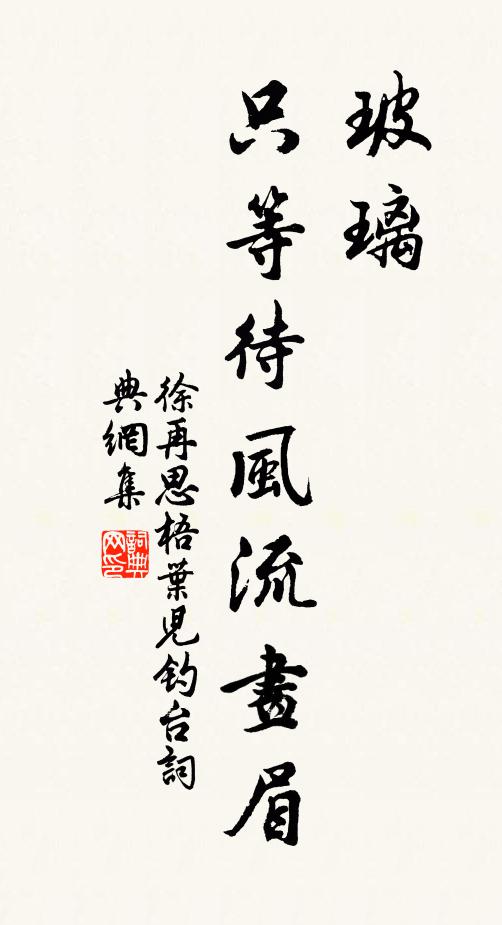 玻璃
只等待風流畫眉
徐再思梧葉兒钓台詞
典網集
詞典
网印